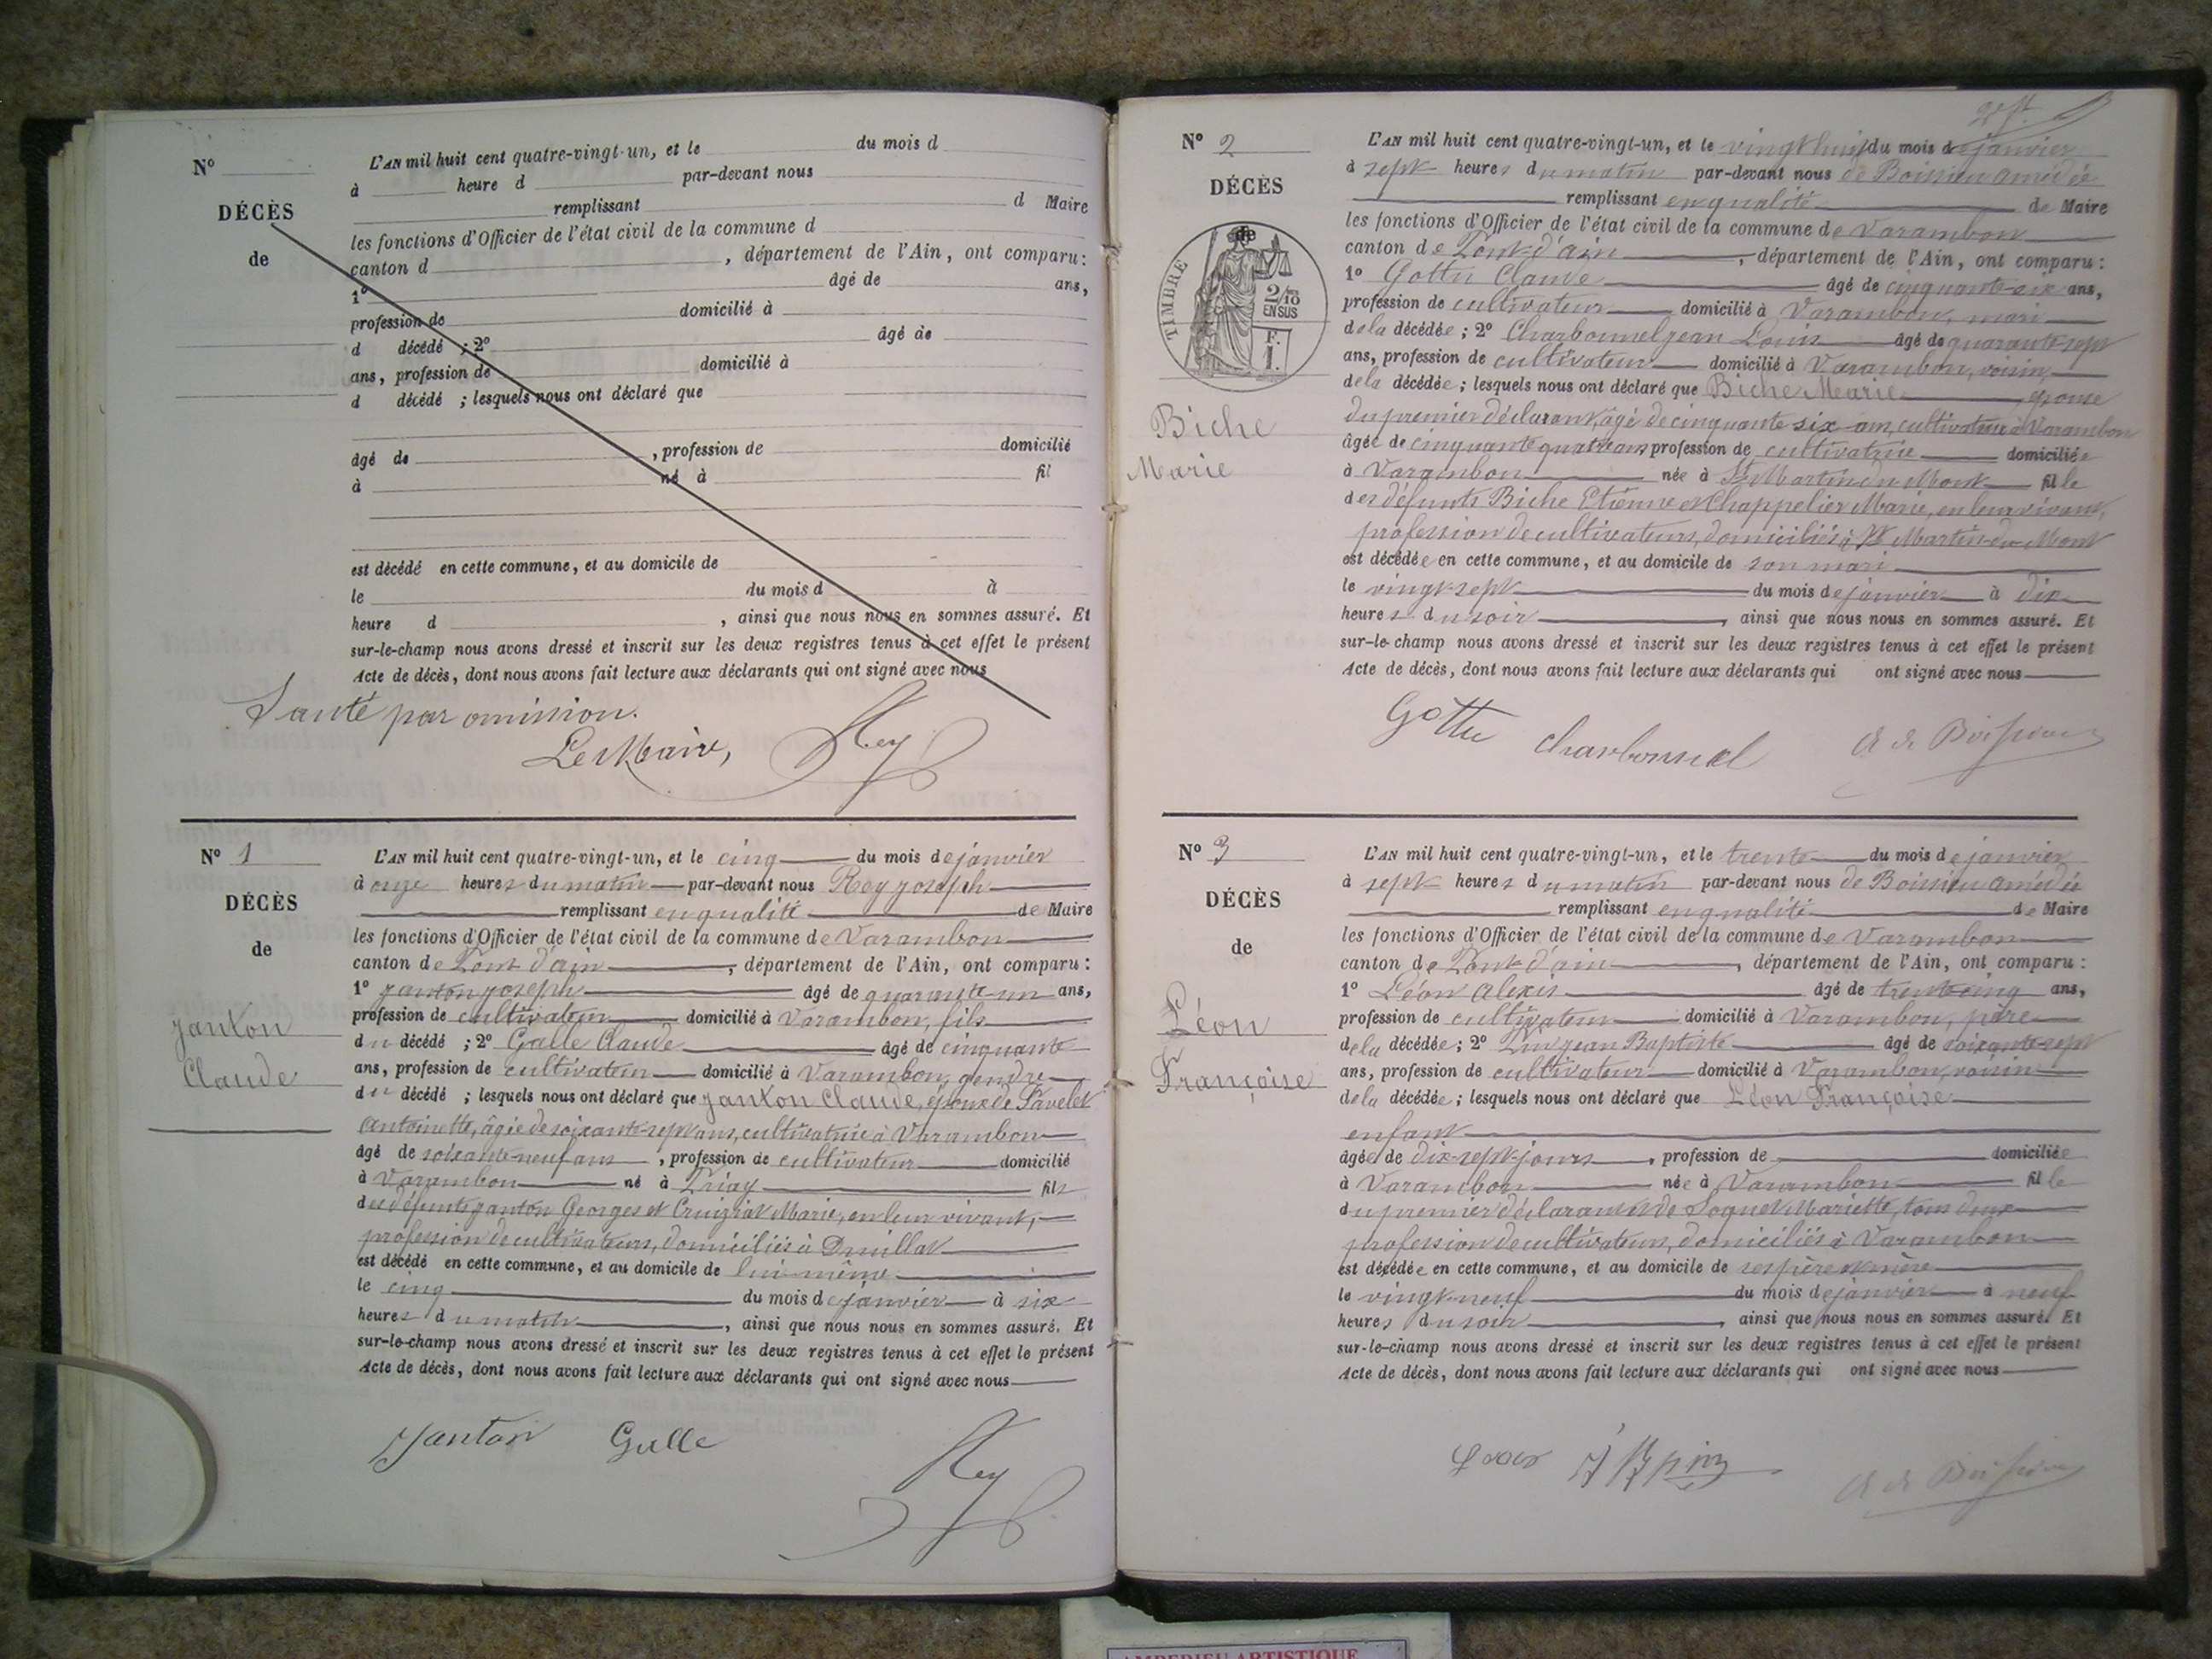 N°
DÉCÈS
de
L'AN mil huit cent quatre-vingt-un, et le du mois d
à heure d par-devant nous
remplissant d Maire
les fonctions d'Officier de l'état civil de la commune d
canton d , département de l'Ain, ont comparu:
1° âgé de ans,
profession de domicilié à
d décédé ; 2° âgé de
ans, profession de domicilié à
d décédé ; lesquels nous ont déclaré que
âgé de , profession de domicilié
à né à fil
est décédé en cette commune, et au domicile de
le du mois d à
heure d , ainsi que nous nous en sommes assuré. Et
sur-le-champ nous avons dressé et inscrit sur les deux registres tenus à cet effet le présent
Acte de décès, dont nous avons fait lecture aux déclarants qui ont signé avec nous
Sauté par omission.
Le Maire, Rey
N° 1
DÉCÈS
de
Janton
Claude
L'AN mil huit cent quatre-vingt-un, et le cinq du mois de janvier
à onze heures du matin par-devant nous Rey joseph
remplissant en qualité de Maire
les fonctions d'Officier de l'état civil de la commune de Varambon
canton de Pont d'ain , département de l'Ain, ont comparu:
1° janton joseph âgé de quarante-un ans,
profession de cultivateur domicilié à Varambon, fils
du décédé ; 2° Galle Claude âgé de cinquante
ans, profession de cultivateur domicilié à Varambon, gendre
du décédé ; lesquels nous ont déclaré que janton Claude, époux de Pavelet
Antoinette, âgée de soixante-sept ans, cultivatrice à Varambon
âgé de soixante-neuf ans , profession de cultivateur domicilié
à Varambon né à Priay fils
des défunts janton Georges et Cruiziat Marie, en leur vivant,
profession de cultivateurs, domiciliés à Druillat
est décédé en cette commune, et au domicile de lui-même
le cinq du mois de janvier à six
heures du matin , ainsi que nous nous en sommes assuré. Et
sur-le-champ nous avons dressé et inscrit sur les deux registres tenus à cet effet le présent
Acte de décès, dont nous avons fait lecture aux déclarants qui ont signé avec nous
Janton Galle Rey
N° 2
DÉCÈS
de
TIMBRE
2/10
EN SUS
F.
1.
Biche
Marie
L'AN mil huit cent quatre-vingt-un, et le vingt huit du mois de janvier
à sept heures du matin par-devant nous de Boissieu amédée
remplissant en qualité de Maire
les fonctions d'Officier de l'état civil de la commune de Varambon
canton de Pont-d'ain , département de l'Ain, ont comparu:
1° Gottu Claude âgé de cinquante-six ans,
profession de cultivateur domicilié à Varambon, mari
de la décédée ; 2° Charbonnel jean Louis âgé de quarante-sept
ans, profession de cultivateur domicilié à Varambon, voisin
de la décédée ; lesquels nous ont déclaré que Biche Marie épouse
du premier déclarant, âgé de cinquante six ans, cultivateur à Varambon
âgée de cinquante quatre ans profession de cultivatrice domiciliée
à Varambon née à St Martin du Mont fille
des défunts Biche Etienne et Chappelier Marie, en leur vivant,
profession de cultivateurs, domiciliés à St Martin-du-Mont
est décédée en cette commune, et au domicile de son mari
le vingt-sept du mois de janvier à dix
heures du soir , ainsi que nous nous en sommes assuré. Et
sur-le-champ nous avons dressé et inscrit sur les deux registres tenus à cet effet le présent
Acte de décès, dont nous avons fait lecture aux déclarants qui ont signé avec nous
Gottu Charbonnel A de Boissieu
N° 3
DÉCÈS
de
Léon
Françoise
L'AN mil huit cent quatre-vingt-un, et le trente du mois de janvier
à sept heures du matin par-devant nous de Boissieu amédée
remplissant en qualité de Maire
les fonctions d'Officier de l'état civil de la commune de Varambon
canton de Pont-d'ain , département de l'Ain, ont comparu:
1° Léon Alexis âgé de trente-cinq ans,
profession de cultivateur domicilié à Varambon, père
de la décédée ; 2° jean Baptiste âgé de soixante-sept
ans, profession de cultivateur domicilié à Varambon, voisin
de la décédée ; lesquels nous ont déclaré que Léon Françoise
enfant
âgée de dix-sept jours , profession de domiciliée
à Varambon née à Varambon fille
du premier déclarant et de Mariette, tous deux
profession de cultivateurs, domiciliés à Varambon
est décédée en cette commune, et au domicile de ses père et mère
le vingt-neuf du mois de janvier à neuf
heures du soir , ainsi que nous nous en sommes assuré. Et
sur-le-champ nous avons dressé et inscrit sur les deux registres tenus à cet effet le présent
Acte de décès, dont nous avons fait lecture aux déclarants qui ont signé avec nous
A de Boissieu
AMBERIEU ARTISTIQUE